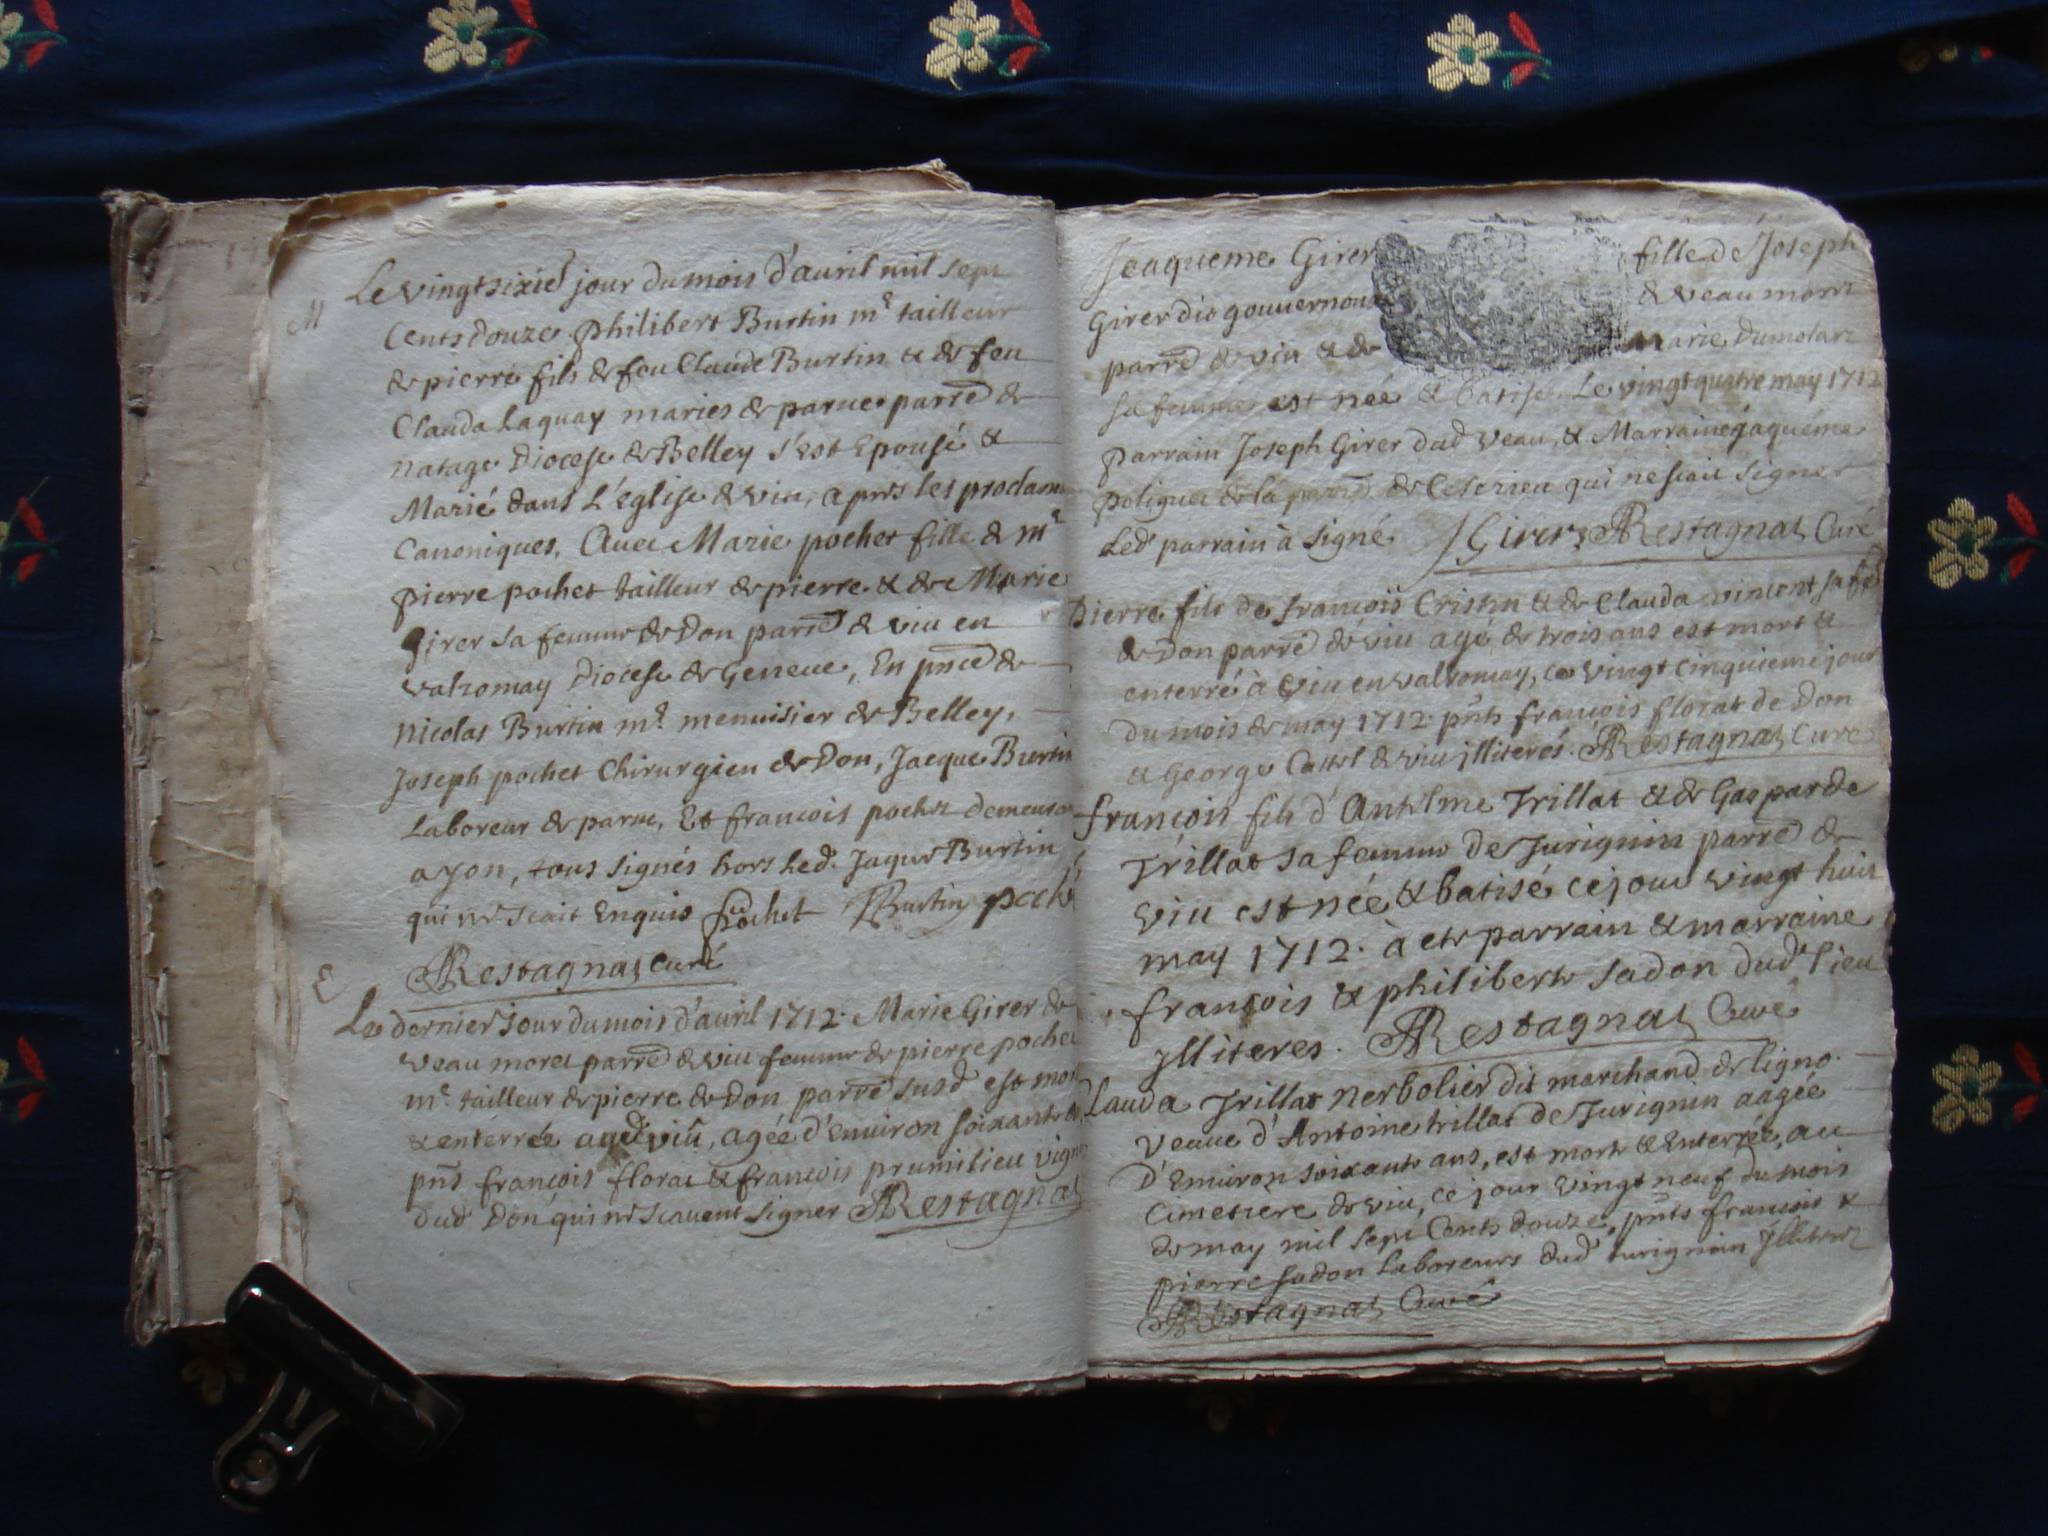 M
Le vingtsixie jour du mois d'auril mil sept
Cents douze philibert Burtin mr tailleur
de pierre fils de feu Claude Burtin & de feu
Clauda Laquay maries de parue parre de
natage Diocese de Belley s'est Epousé &
Marié dans L'église de viu, apres les proclam
Canoniques, Auec Marie pochet fille de mr
pierre pochet tailleur de pierre & de Marie
Girer sa femme de Don parre de viu en
valromay Diocese de Geneue, En pnce de
nicolas Burtin mr menuisier de Belley,
Joseph pochet Chirurgien de Don, Jacque Burtin
Laboreur de parue, Et francois pochet demeurant
a yon, tous signés hors led. Jaque Burtin
qui ne scait Enquis pochet Burtin poch
Restagnat curé
E
Le dernier jour du mois d'auril 1712. Marie Girer de
veau moret parre de viu femme de pierre pochet
mr. tailleur de pierre de Don parre susd est mor
& enterrée aud viu, agée d'Enuiron soixante
pns françois florat & francois prumilieu vign
dud Don qui ne scauent signer Restagnat
Jeaqueme Girer fille de Joseph
Girer dit gouuernou de veau moret
parre de viu & de marie Dumolart
sa femme est née & batisé Le vingt quatre may 1712
parrain Joseph Girer dud veau, & Marraine jaquéme
poliguet de la parre de Ceserieu qui ne scait signer
Led parrain à signé J Girer Restagnat Curé
Pierre fils de françois Cristin & de Clauda vincent sa fe
de Don parre de viu agé de trois ans est mort &
enterré à viu en valromay, ce vingt cinquieme jour
du mois de may 1712. pnts françois florat de Don
& George Cattel de viu jlliterés. Restagnat Curé
françois fils d'Antelme Trillat & de Gasparde
Trillat sa femme de Jurignin parre de
viu est née & batisé ce jour vingt huit
may 1712. à ete parrain & marraine
françois & philiberte sadon dud lieu
jlliteres. Restagnat Curé
Clauda Trillat nerbolier dit marchand de ligno
veaue d'Antoine trillat de Jurignin aagée
d'Enuiron soixante ans, est morte & Enterrée, au
Cimetiere de viu, ce jour vingt neuf du mois
de may mil sept Cents douze, pnts francois &
pierre sadon Laboreurs dud jurignin jlliteres
Restagnat Curé